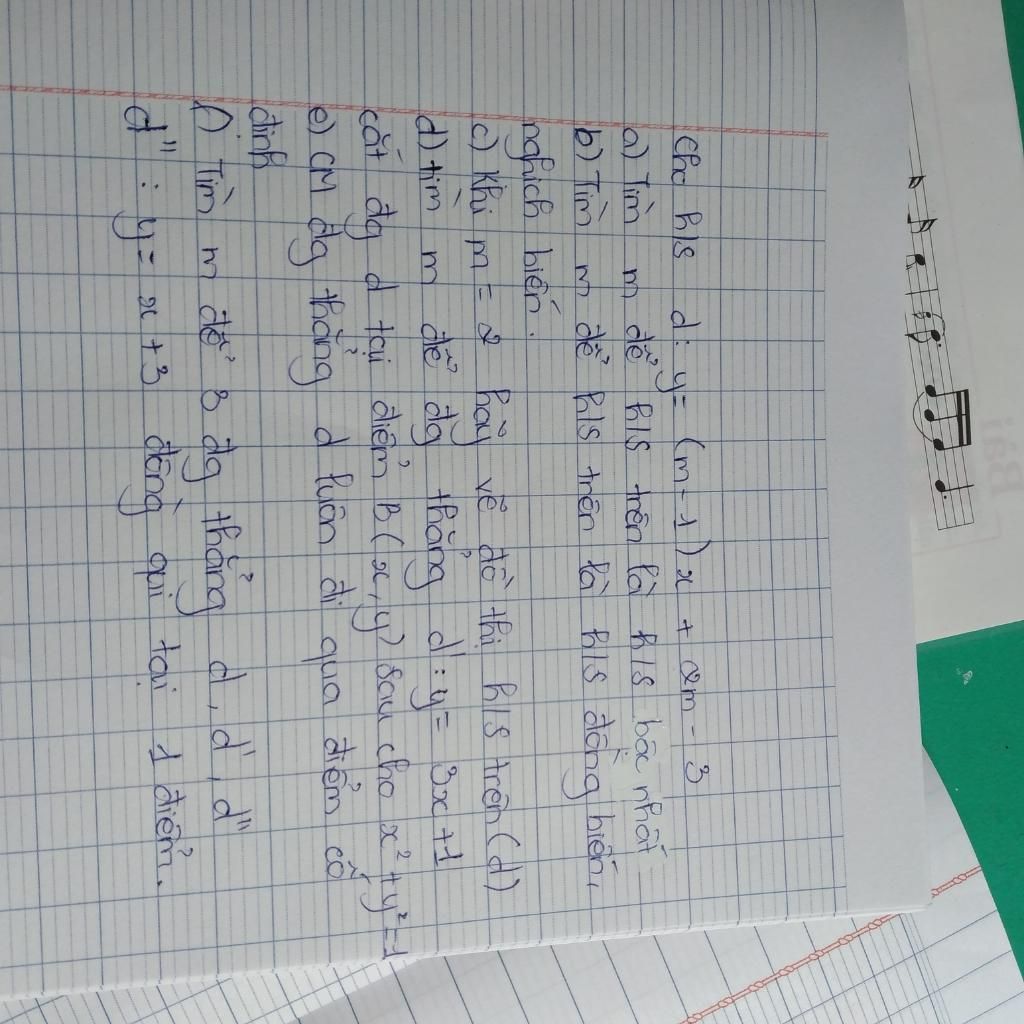 Cho h/s d: y = (m-1)x + 2m-3
a) Tìm m để h/s trên là h/s bậc nhất
b) Tìm m để h/s trên là h/s đồng biến,
nghịch biến.
c) Khi m = 2 hãy vẽ đồ thị h/s trên (d)
d) tìm m để đg thẳng d': y = 3x+1
cắt đg d tại điểm B(x,y) sau cho x²+y²=1
e) CM đg thẳng d luôn đi qua điểm cố
định
f) Tìm m để 3 đg thẳng d, d', d''
d'': y = x+3 đồng qui tại 1 điểm.
Bài